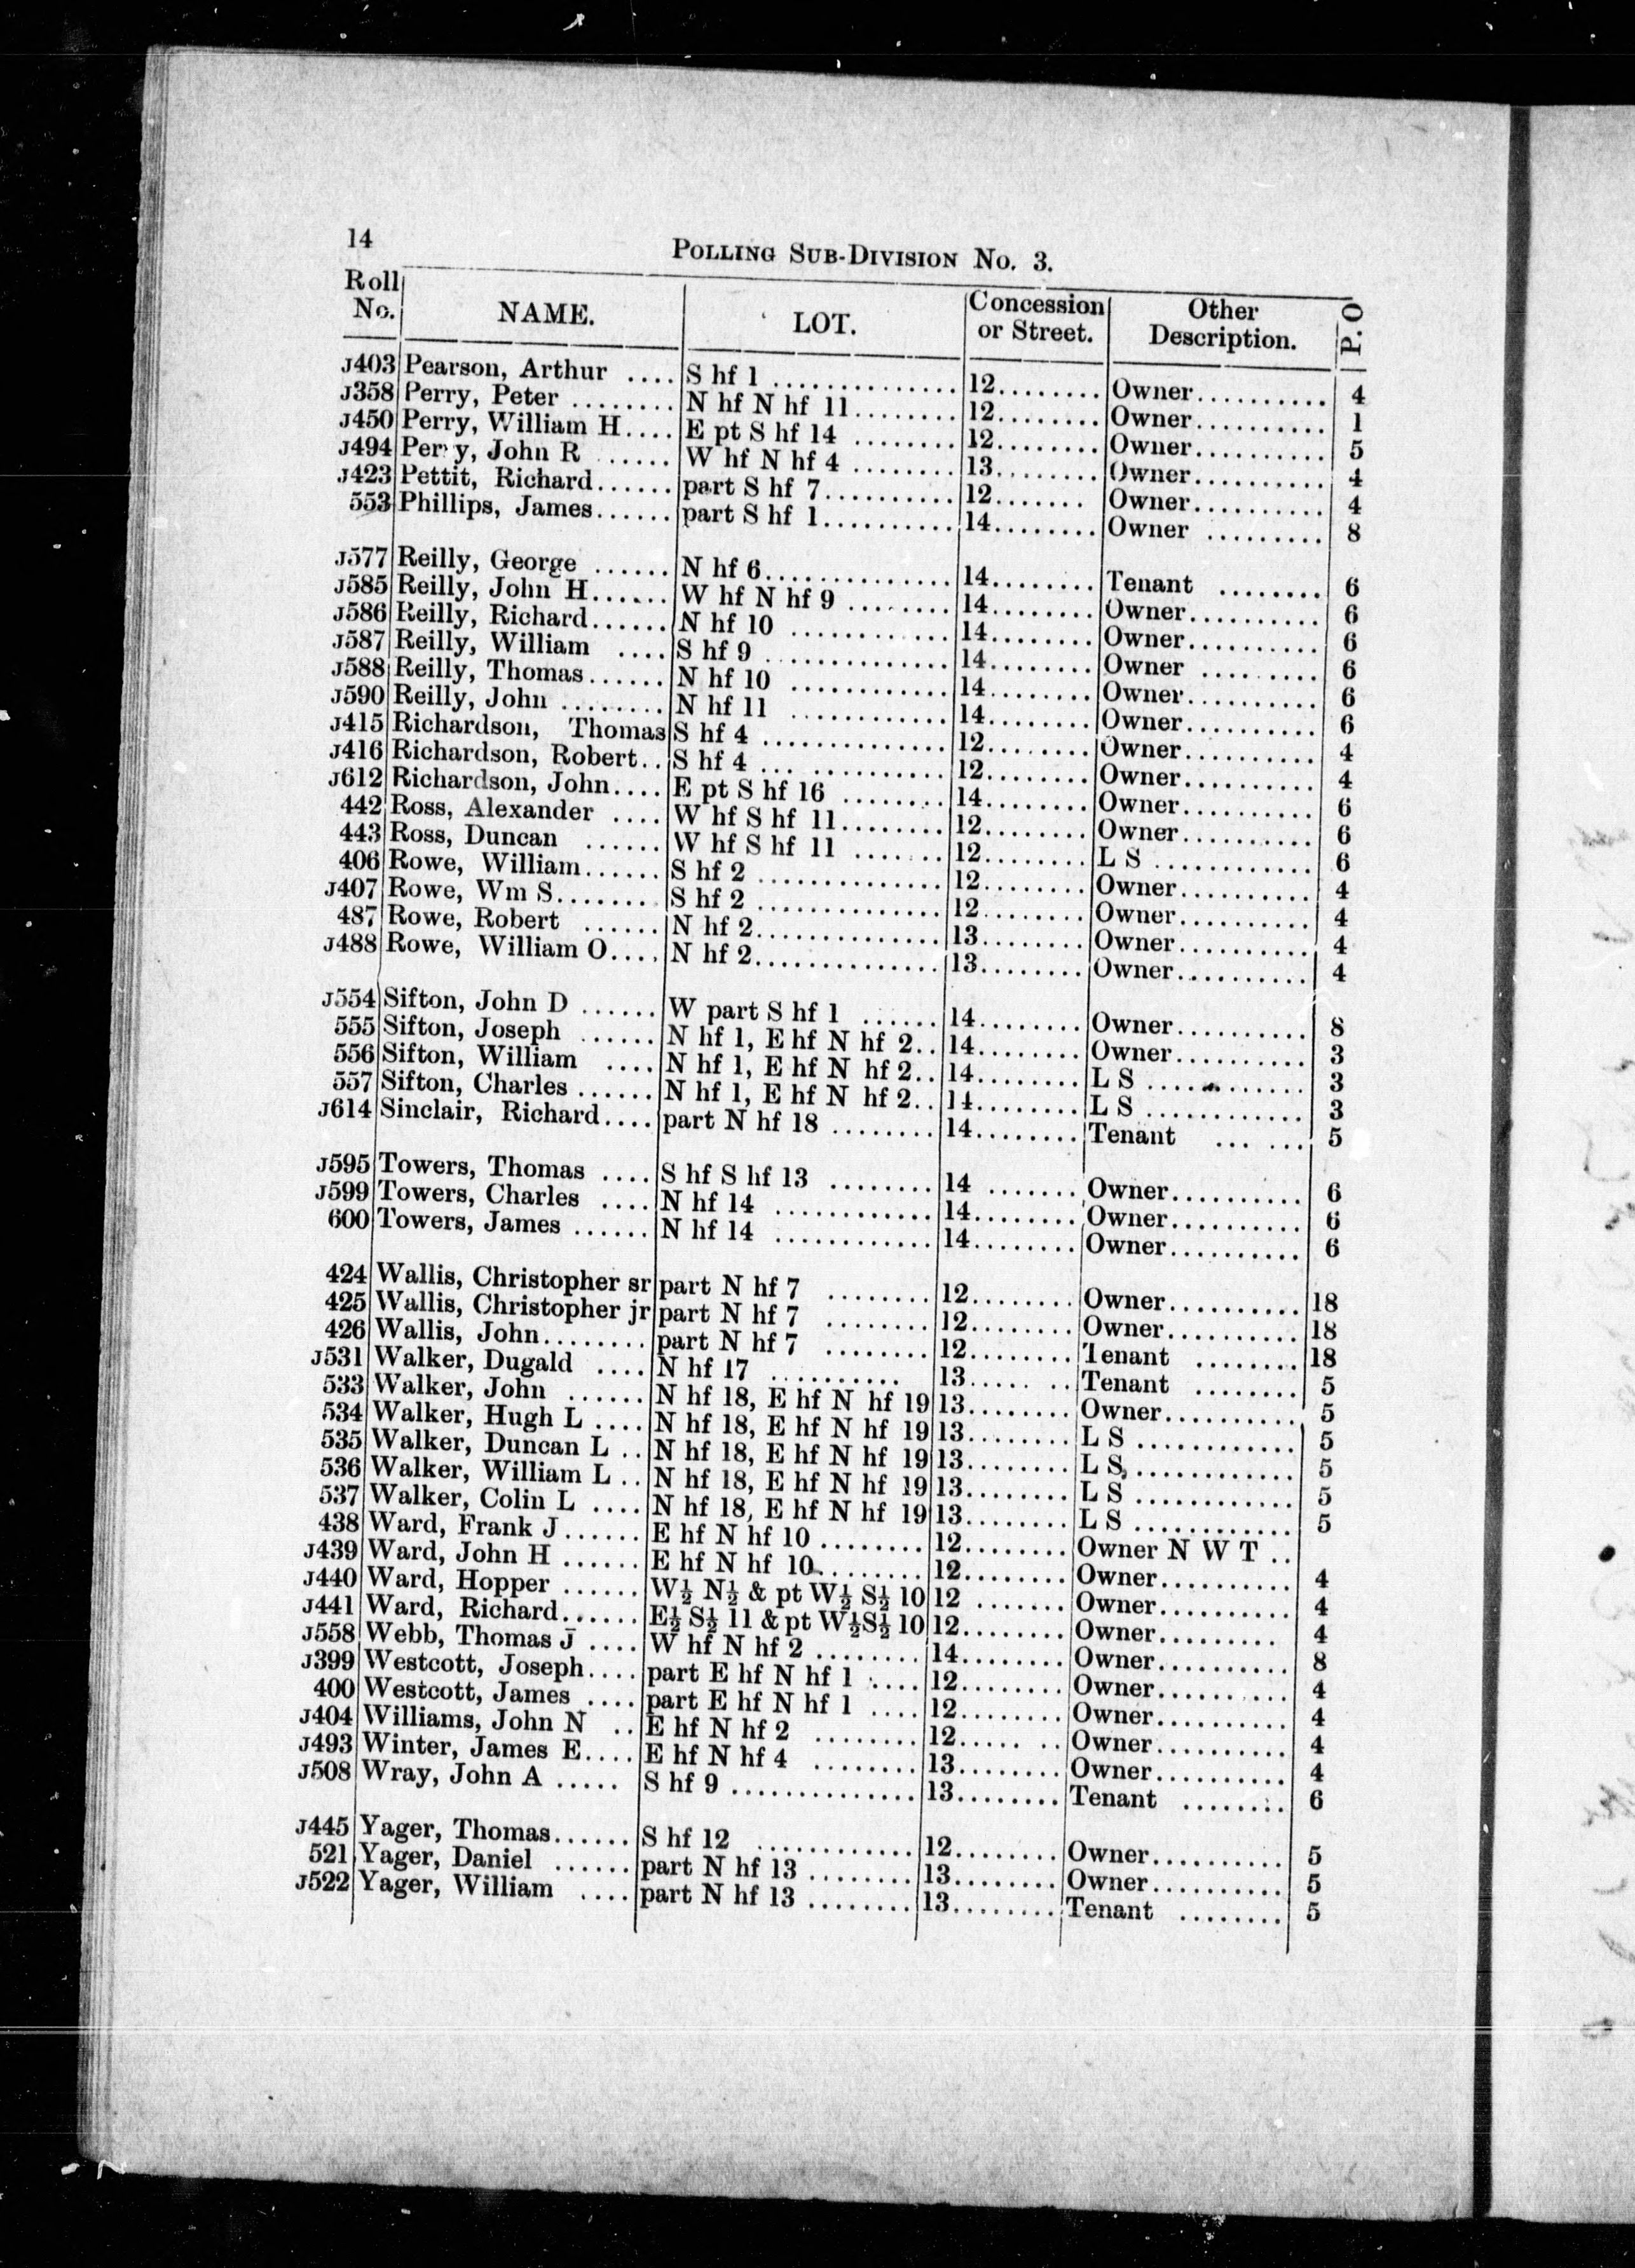 14
POLLING SUB-DIVISION No. 3.
Roll No. NAME. LOT. Concession or Street. Other Description. P. O
J403 Pearson, Arthur .... S hf 1 .............. 12........ Owner.......... 4
J358 Perry, Peter ........ N hf N hf 11........ 12........ Owner.......... 1
J450 Perry, William H.... E pt S hf 14 ........ 12........ Owner.......... 5
J494 Perry, John R ...... W hf N hf 4 ........ 13........ Owner.......... 4
J423 Pettit, Richard...... part S hf 7.......... 12....... Owner.......... 4
553 Phillips, James...... part S hf 1.......... 14........ Owner ......... 8
J577 Reilly, George ...... N hf 6.............. 14........ Tenant ........ 6
J585 Reilly, John H...... W hf N hf 9 ........ 14........ Owner.......... 6
J586 Reilly, Richard...... N hf 10 ............ 14........ Owner.......... 6
J587 Reilly, William .... S hf 9 .............. 14........ Owner ......... 6
J588 Reilly, Thomas...... N hf 10 ............ 14........ Owner.......... 6
J590 Reilly, John ........ N hf 11 ............ 14........ Owner.......... 6
J415 Richardson, Thomas S hf 4 .............. 12........ Owner.......... 4
J416 Richardson, Robert.. S hf 4 ... .......... 12........ Owner.......... 4
J612 Richardson, John.... E pt S hf 16 ........ 14........ Owner.......... 6
442 Ross, Alexander .... W hf S hf 11........ 12........ Owner.......... 6
443 Ross, Duncan ...... W hf S hf 11 ....... 12........ L S ............ 6
406 Rowe, William...... S hf 2 .............. 12........ Owner.......... 4
J407 Rowe, Wm S........ S hf 2 .............. 12........ Owner.......... 4
487 Rowe, Robert ...... N hf 2.............. 13........ Owner.......... 4
J488 Rowe, William O.... N hf 2.............. 13........ Owner.......... 4
J554 Sifton, John D ...... W part S hf 1 ...... 14........ Owner.......... 8
555 Sifton, Joseph ...... N hf 1, E hf N hf 2.. 14........ Owner.......... 3
556 Sifton, William .... N hf 1, E hf N hf 2.. 14........ L S ............ 3
557 Sifton, Charles ...... N hf 1, E hf N hf 2.. 14........ L S ............ 3
J614 Sinclair, Richard.... part N hf 18 ........ 14........ Tenant ... ... 5
J595 Towers, Thomas .... S hf S hf 13 ........ 14 ....... Owner.......... 6
J599 Towers, Charles .... N hf 14 ............ 14........ Owner.......... 6
600 Towers, James ...... N hf 14 ............ 14........ Owner.......... 6
424 Wallis, Christopher sr part N hf 7 ........ 12........ Owner.......... 18
425 Wallis, Christopher jr part N hf 7 ........ 12........ Owner.......... 18
426 Wallis, John........ part N hf 7 ........ 12........ Tenant ........ 18
J531 Walker, Dugald .... N hf 17 .......... 13..... .. Tenant ........ 5
533 Walker, John ...... N hf 18, E hf N hf 19 13........ Owner.......... 5
534 Walker, Hugh L .... N hf 18, E hf N hf 19 13........ L S ............ 5
535 Walker, Duncan L .. N hf 18, E hf N hf 19 13........ L S............. 5
536 Walker, William L .. N hf 18, E hf N hf 19 13........ L S ............ 5
537 Walker, Colin L .... N hf 18, E hf N hf 19 13........ L S ............ 5
438 Ward, Frank J...... E hf N hf 10 ........ 12........ Owner N W T ..
J439 Ward, John H ...... E hf N hf 10........ 12........ Owner.......... 4
J440 Ward, Hopper ...... W½ N½ & pt W½ S½ 10 12 ....... Owner.......... 4
J441 Ward, Richard...... E½ S½ 11 & pt W½S½ 10 12........ Owner......... 4
J558 Webb, Thomas J .... W hf N hf 2 ........ 14........ Owner.......... 8
J399 Westcott, Joseph.... part E hf N hf 1 .... 12........ Owner.......... 4
400 Westcott, James .... part E hf N hf 1 .... 12........ Owner.......... 4
J404 Williams, John N .. E hf N hf 2 ........ 12..... .. Owner.......... 4
J493 Winter, James E.... E hf N hf 4 ........ 13........ Owner.......... 4
J508 Wray, John A ..... S hf 9 .............. 13........ Tenant ........ 6
J445 Yager, Thomas...... S hf 12 ............ 12........ Owner.......... 5
521 Yager, Daniel ...... part N hf 13 ........ 13........ Owner.......... 5
J522 Yager, William .... part N hf 13 ........ 13........ Tenant ........ 5